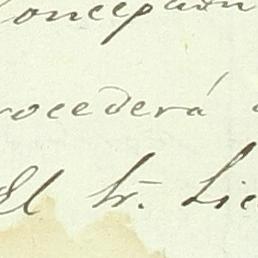 oncepción
rocederá
El Sr. Lic